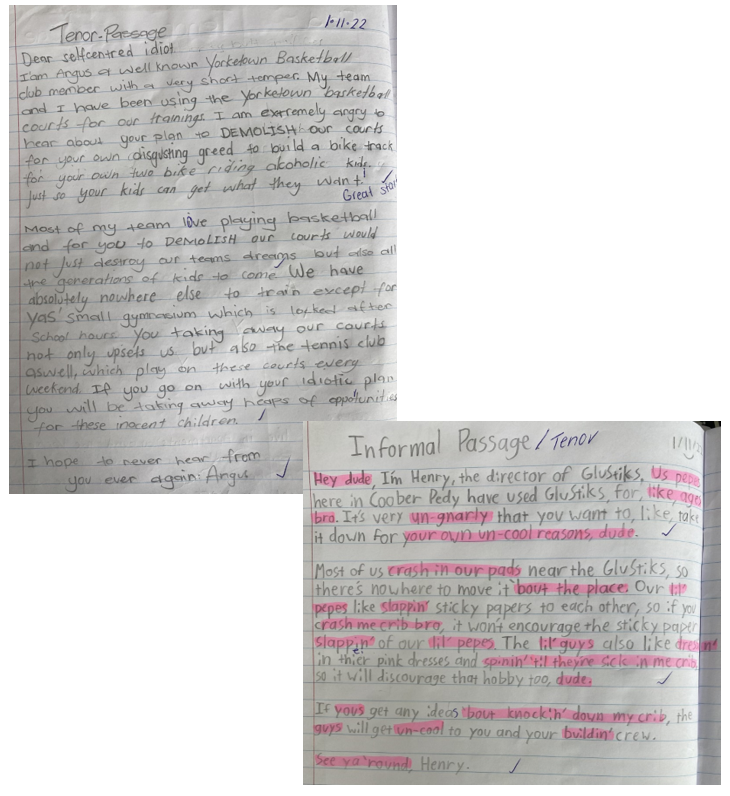 Tenor-Passage 1·11·22
Dear selfcentred idiot
I'am Angus a well known Yorketown Basketball
club member with a very short temper. My team
and I have been using the Yorketown basketball
courts for our trainings I am extremely angry to
hear about your plan to DEMOLISH our courts
for your own disgusting greed to build a bike track
for your own two bike riding alcoholic kids.
Just so your kids can get what they want!
Great start
Most of my team love playing basketball
and for you to DEMOLISH our courts would
not just destroy our teams dreams but also all
the generations of kids to come. We have
absolutely nowhere else to train except for
Yas' small gymnasium which is locked after
school hours. You taking away our courts
not only upsets us but also the tennis club
aswell, which play on these courts every
weekend. If you go on with your idiotic plan
you will be taking away heaps of opportunities
for these inocent children.
I hope to never hear from
you ever again: Angus
Informal Passage / Tenor 1/11/22
Hey dude, I'm Henry, the director of GluStiks. Us pepes
here in Coober Pedy have used GluStiks, for, like, ages
bro. It's very un-gnarly that you want to, like, take
it down for your own un-cool reasons, dude.
Most of us crash in our pads near the GluStiks, so
there's nowhere to move it 'bout the place. Our lil'
pepes like slappin' sticky papers to each other, so if you
crash me crib bro, it won't encourage the sticky paper
slappin' of our lil' pepes. The lil' guys also like dressin'
in their pink dresses and spinin' 'til they're sick in me crib,
so it will discourage that hobby too, dude.
If yous get any ideas 'bout knock'in' down my crib, the
guys will get un-cool to you and your buildin' crew.
See ya 'round, Henry.